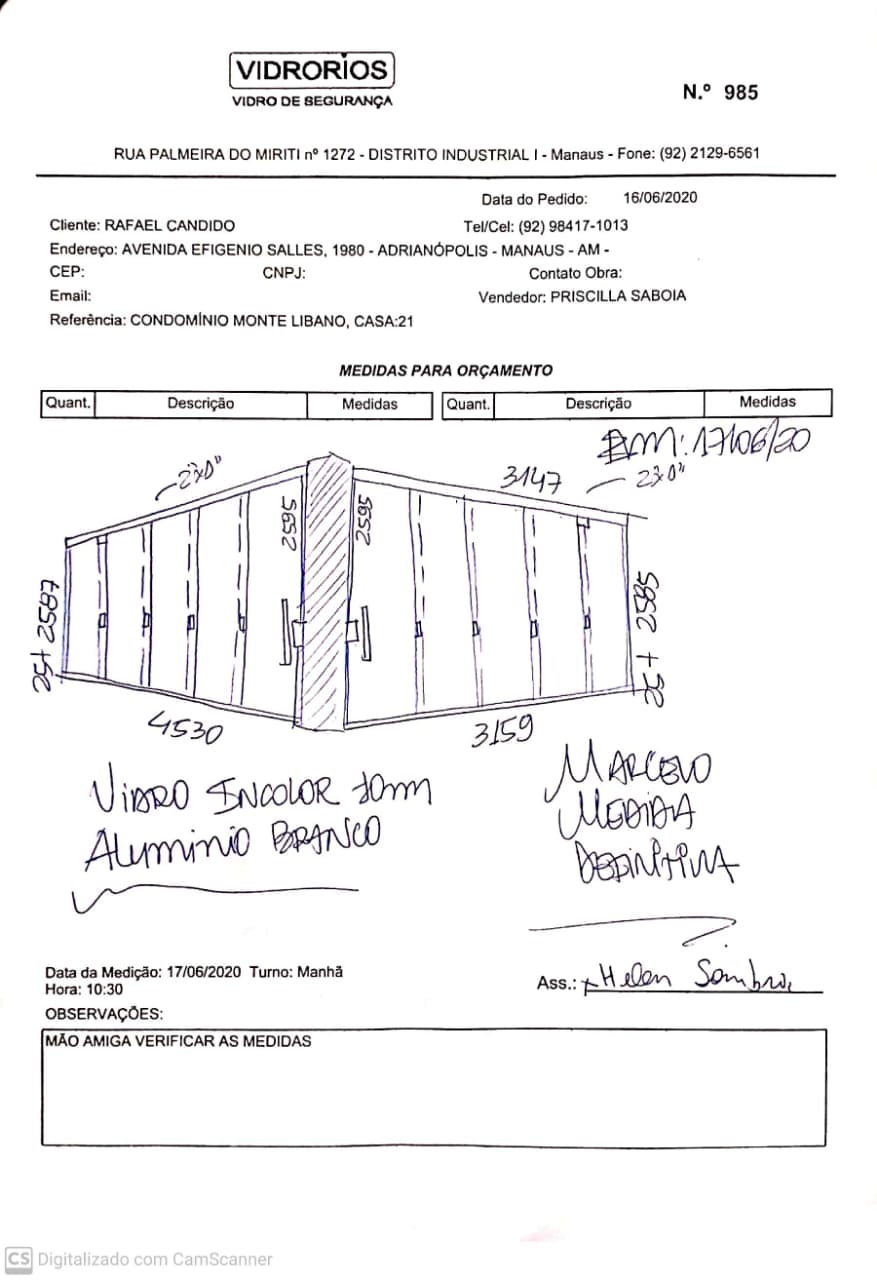 VIDRORIOS
VIDRO DE SEGURANÇA
N.º 985
RUA PALMEIRA DO MIRITI nº 1272 - DISTRITO INDUSTRIAL I - Manaus - Fone: (92) 2129-6561
Data do Pedido: 16/06/2020
Cliente: RAFAEL CANDIDO Tel/Cel: (92) 98417-1013
Endereço: AVENIDA EFIGENIO SALLES, 1980 - ADRIANÓPOLIS - MANAUS - AM -
CEP: CNPJ: Contato Obra:
Email: Vendedor: PRISCILLA SABOIA
Referência: CONDOMÍNIO MONTE LIBANO, CASA:21
MEDIDAS PARA ORÇAMENTO
Quant. Descrição Medidas Quant. Descrição Medidas
EM: 17/06/20
3147
2592
2595
25+ 2587
25+ 2585
4530
3159
VIDRO INCOLOR 10mm
ALUMINIO BRANCO
MARCELO
MEDIDA
DEFINITIVA
Data da Medição: 17/06/2020 Turno: Manhã
Hora: 10:30
Ass.: Helen
OBSERVAÇÕES:
MÃO AMIGA VERIFICAR AS MEDIDAS
CS Digitalizado com CamScanner